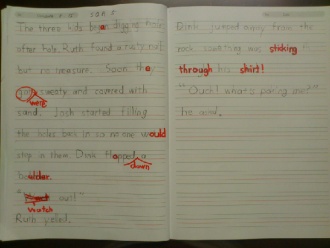 The three kids began digging hole
after hole. Ruth found a rusty nail
but no treasure. Soon they
were sweaty and covered with
sand. Josh started filling
the holes back in so no one would
step in them. Dink flopped
down
boulder.
watch out!"
Ruth yelled.
Dink jumped away from the
rock. Something was sticking
through his shirt!
"Ouch! What's poking me?"
he said.